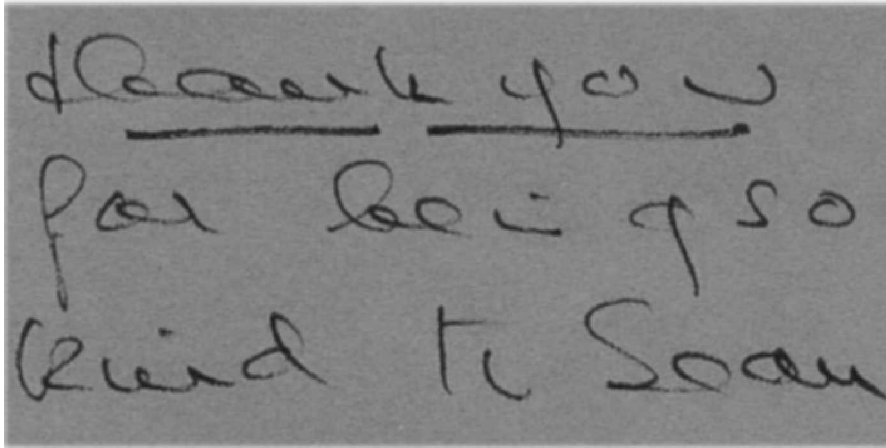 thank you
for being so
kind to Sean